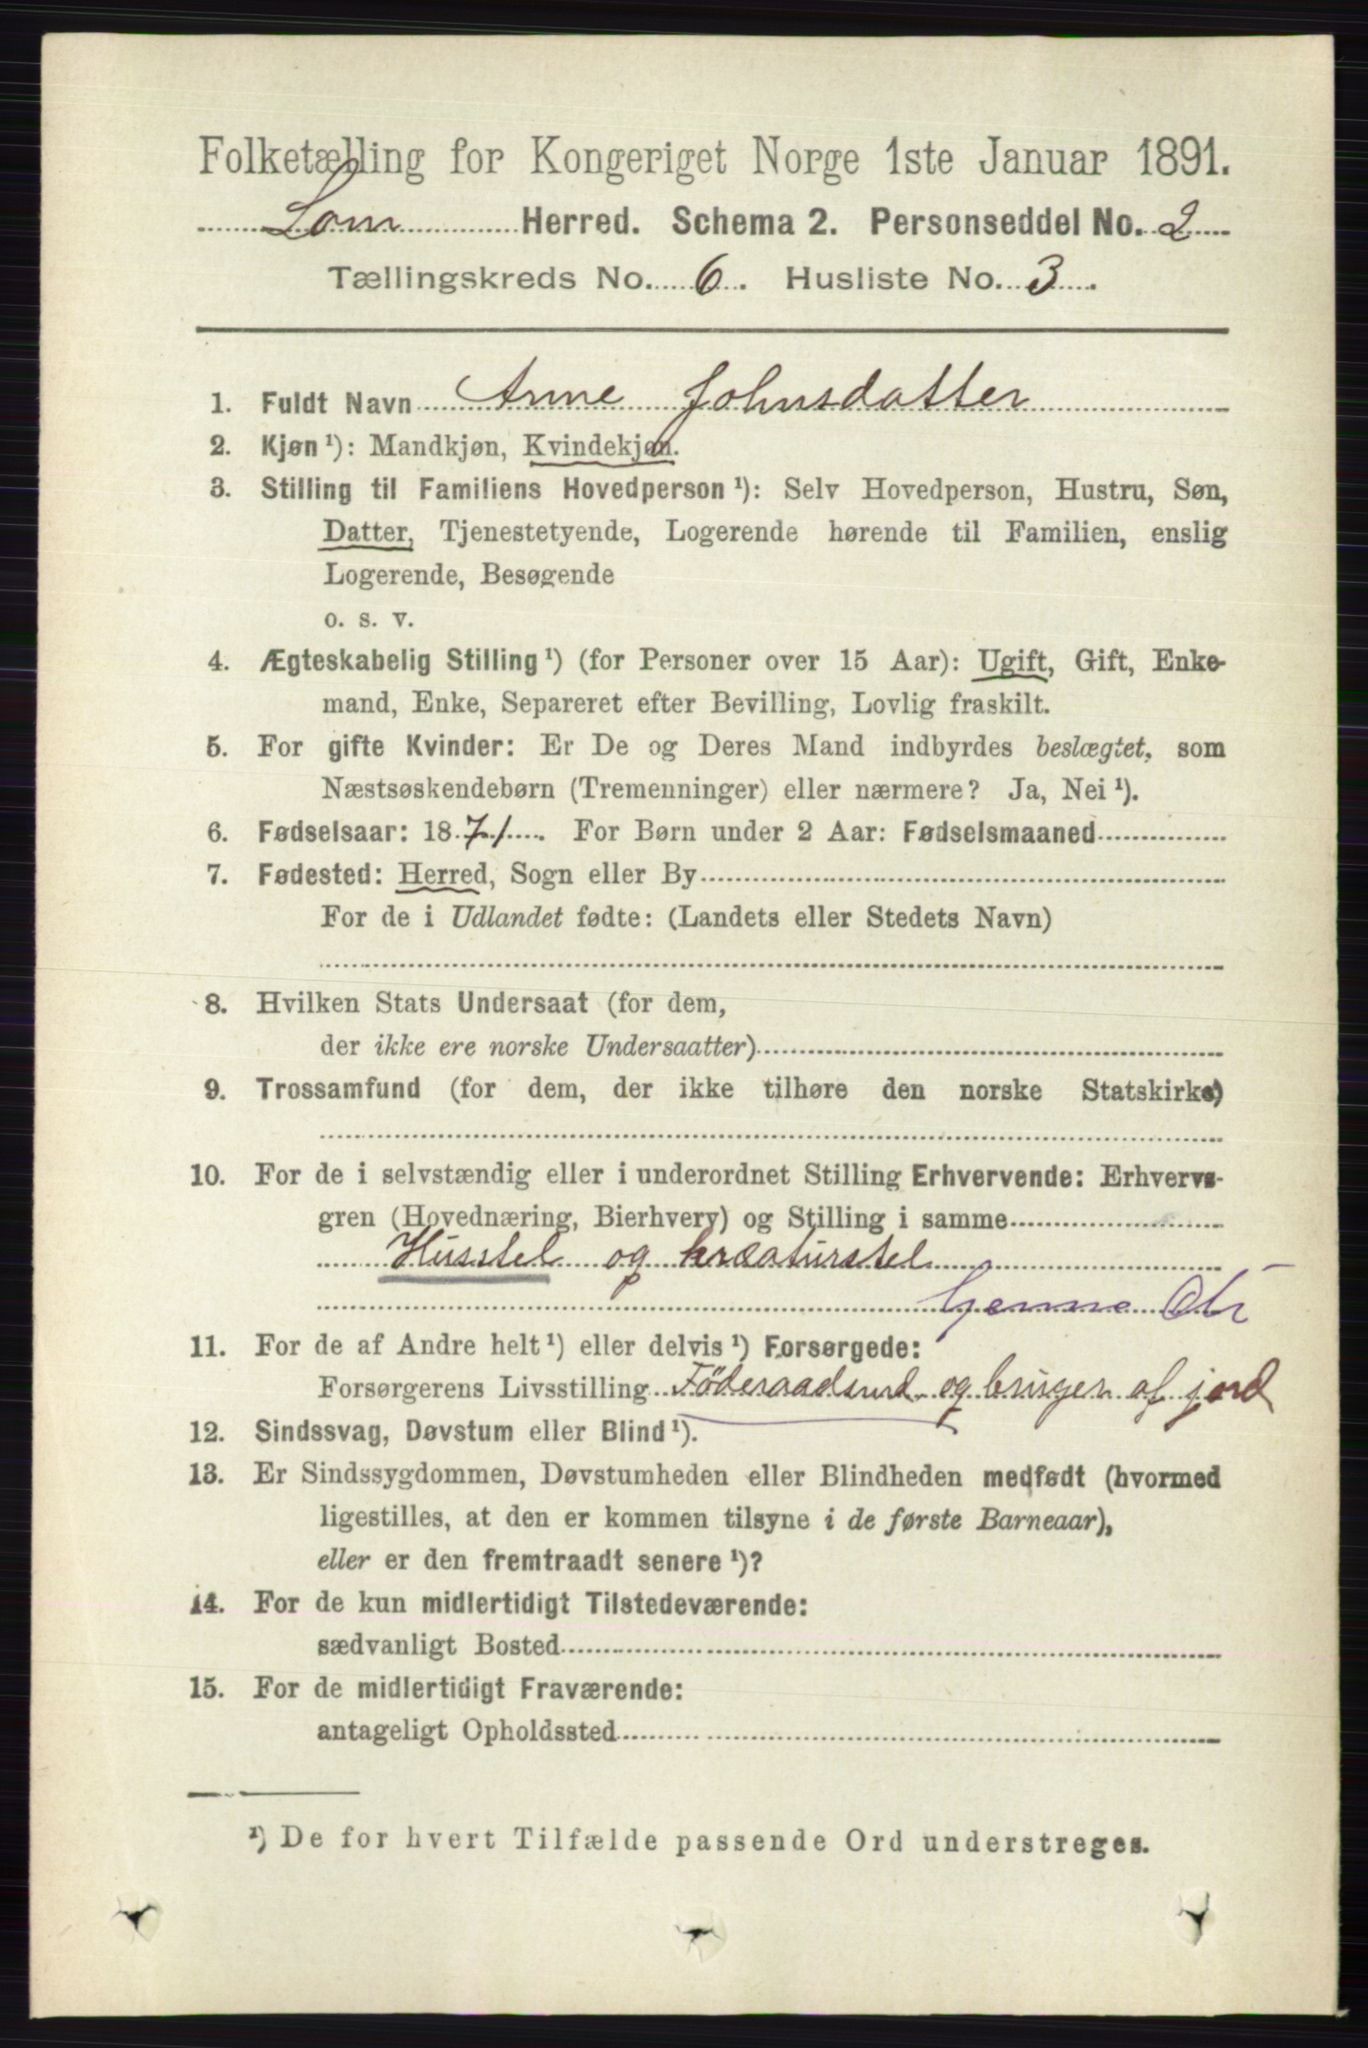 Folketælling for Kongeriget Norge 1ste Januar 1891.
Lom Herred. Schema 2. Personseddel No. 2
Tællingskreds No. 6. Husliste No. 3.
1. Fuldt Navn Anne Johnsdatter
2. Kjøn ¹): Mandkjøn, Kvindekjøn.
3. Stilling til Familiens Hovedperson ¹): Selv Hovedperson, Hustru, Søn,
Datter, Tjenestetyende, Logerende hørende til Familien, enslig
Logerende, Besøgende
o. s. v.
4. Ægteskabelig Stilling ¹) (for Personer over 15 Aar): Ugift, Gift, Enke-
mand, Enke, Separeret efter Bevilling, Lovlig fraskilt.
5. For gifte Kvinder: Er De og Deres Mand indbyrdes beslægtet, som
Næstsøskendebørn (Tremenninger) eller nærmere? Ja, Nei ¹).
6. Fødselsaar: 1871. For Børn under 2 Aar: Fødselsmaaned
7. Fødested: Herred, Sogn eller By
For de i Udlandet fødte: (Landets eller Stedets Navn)
8. Hvilken Stats Undersaat (for dem,
der ikke ere norske Undersaatter)
9. Trossamfund (for dem, der ikke tilhøre den norske Statskirke)
10. For de i selvstændig eller i underordnet Stilling Erhvervende: Erhvervs-
gren (Hovednæring, Bierhverv) og Stilling i samme
Husstel og kræaturstel
11. For de af Andre helt ¹) eller delvis ¹) Forsørgede:
Forsørgerens Livsstilling Föderaadsmd og bruger af jord
12. Sindssvag, Døvstum eller Blind ¹).
13. Er Sindssygdommen, Døvstumheden eller Blindheden medfødt (hvormed
ligestilles, at den er kommen tilsyne i de første Barneaar),
eller er den fremtraadt senere ¹)?
14. For de kun midlertidigt Tilstedeværende:
sædvanligt Bosted
15. For de midlertidigt Fraværende:
antageligt Opholdssted
¹) De for hvert Tilfælde passende Ord understreges.